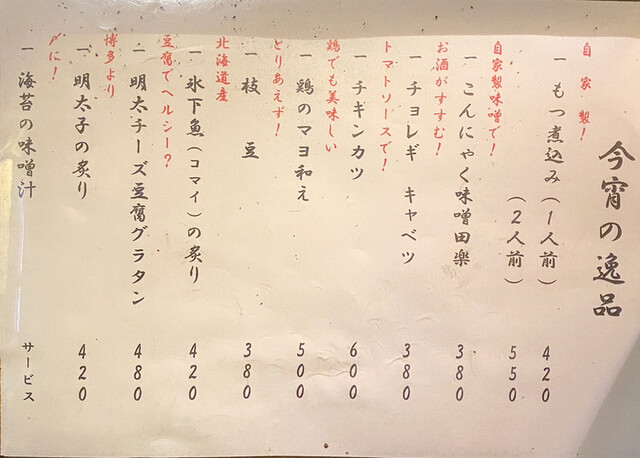 今宵の逸品
自家製!
一 もつ煮込み(1人前) 420
(2人前) 550
自家製味噌で!
一 こんにゃく味噌田楽 380
お酒がすすむ!
一 チョレギ キャベツ 380
トマトソースで!
一 チキンカツ 600
鶏でも美味しい
一 鶏のマヨ和え 500
とりあえず!
一 枝豆 380
北海道産
一 氷下魚(コマイ)の炙り 420
豆腐でヘルシー?
一 明太チーズ豆腐グラタン 480
博多より
一 明太子の炙り 420
〆に!
一 海苔の味噌汁 サービス